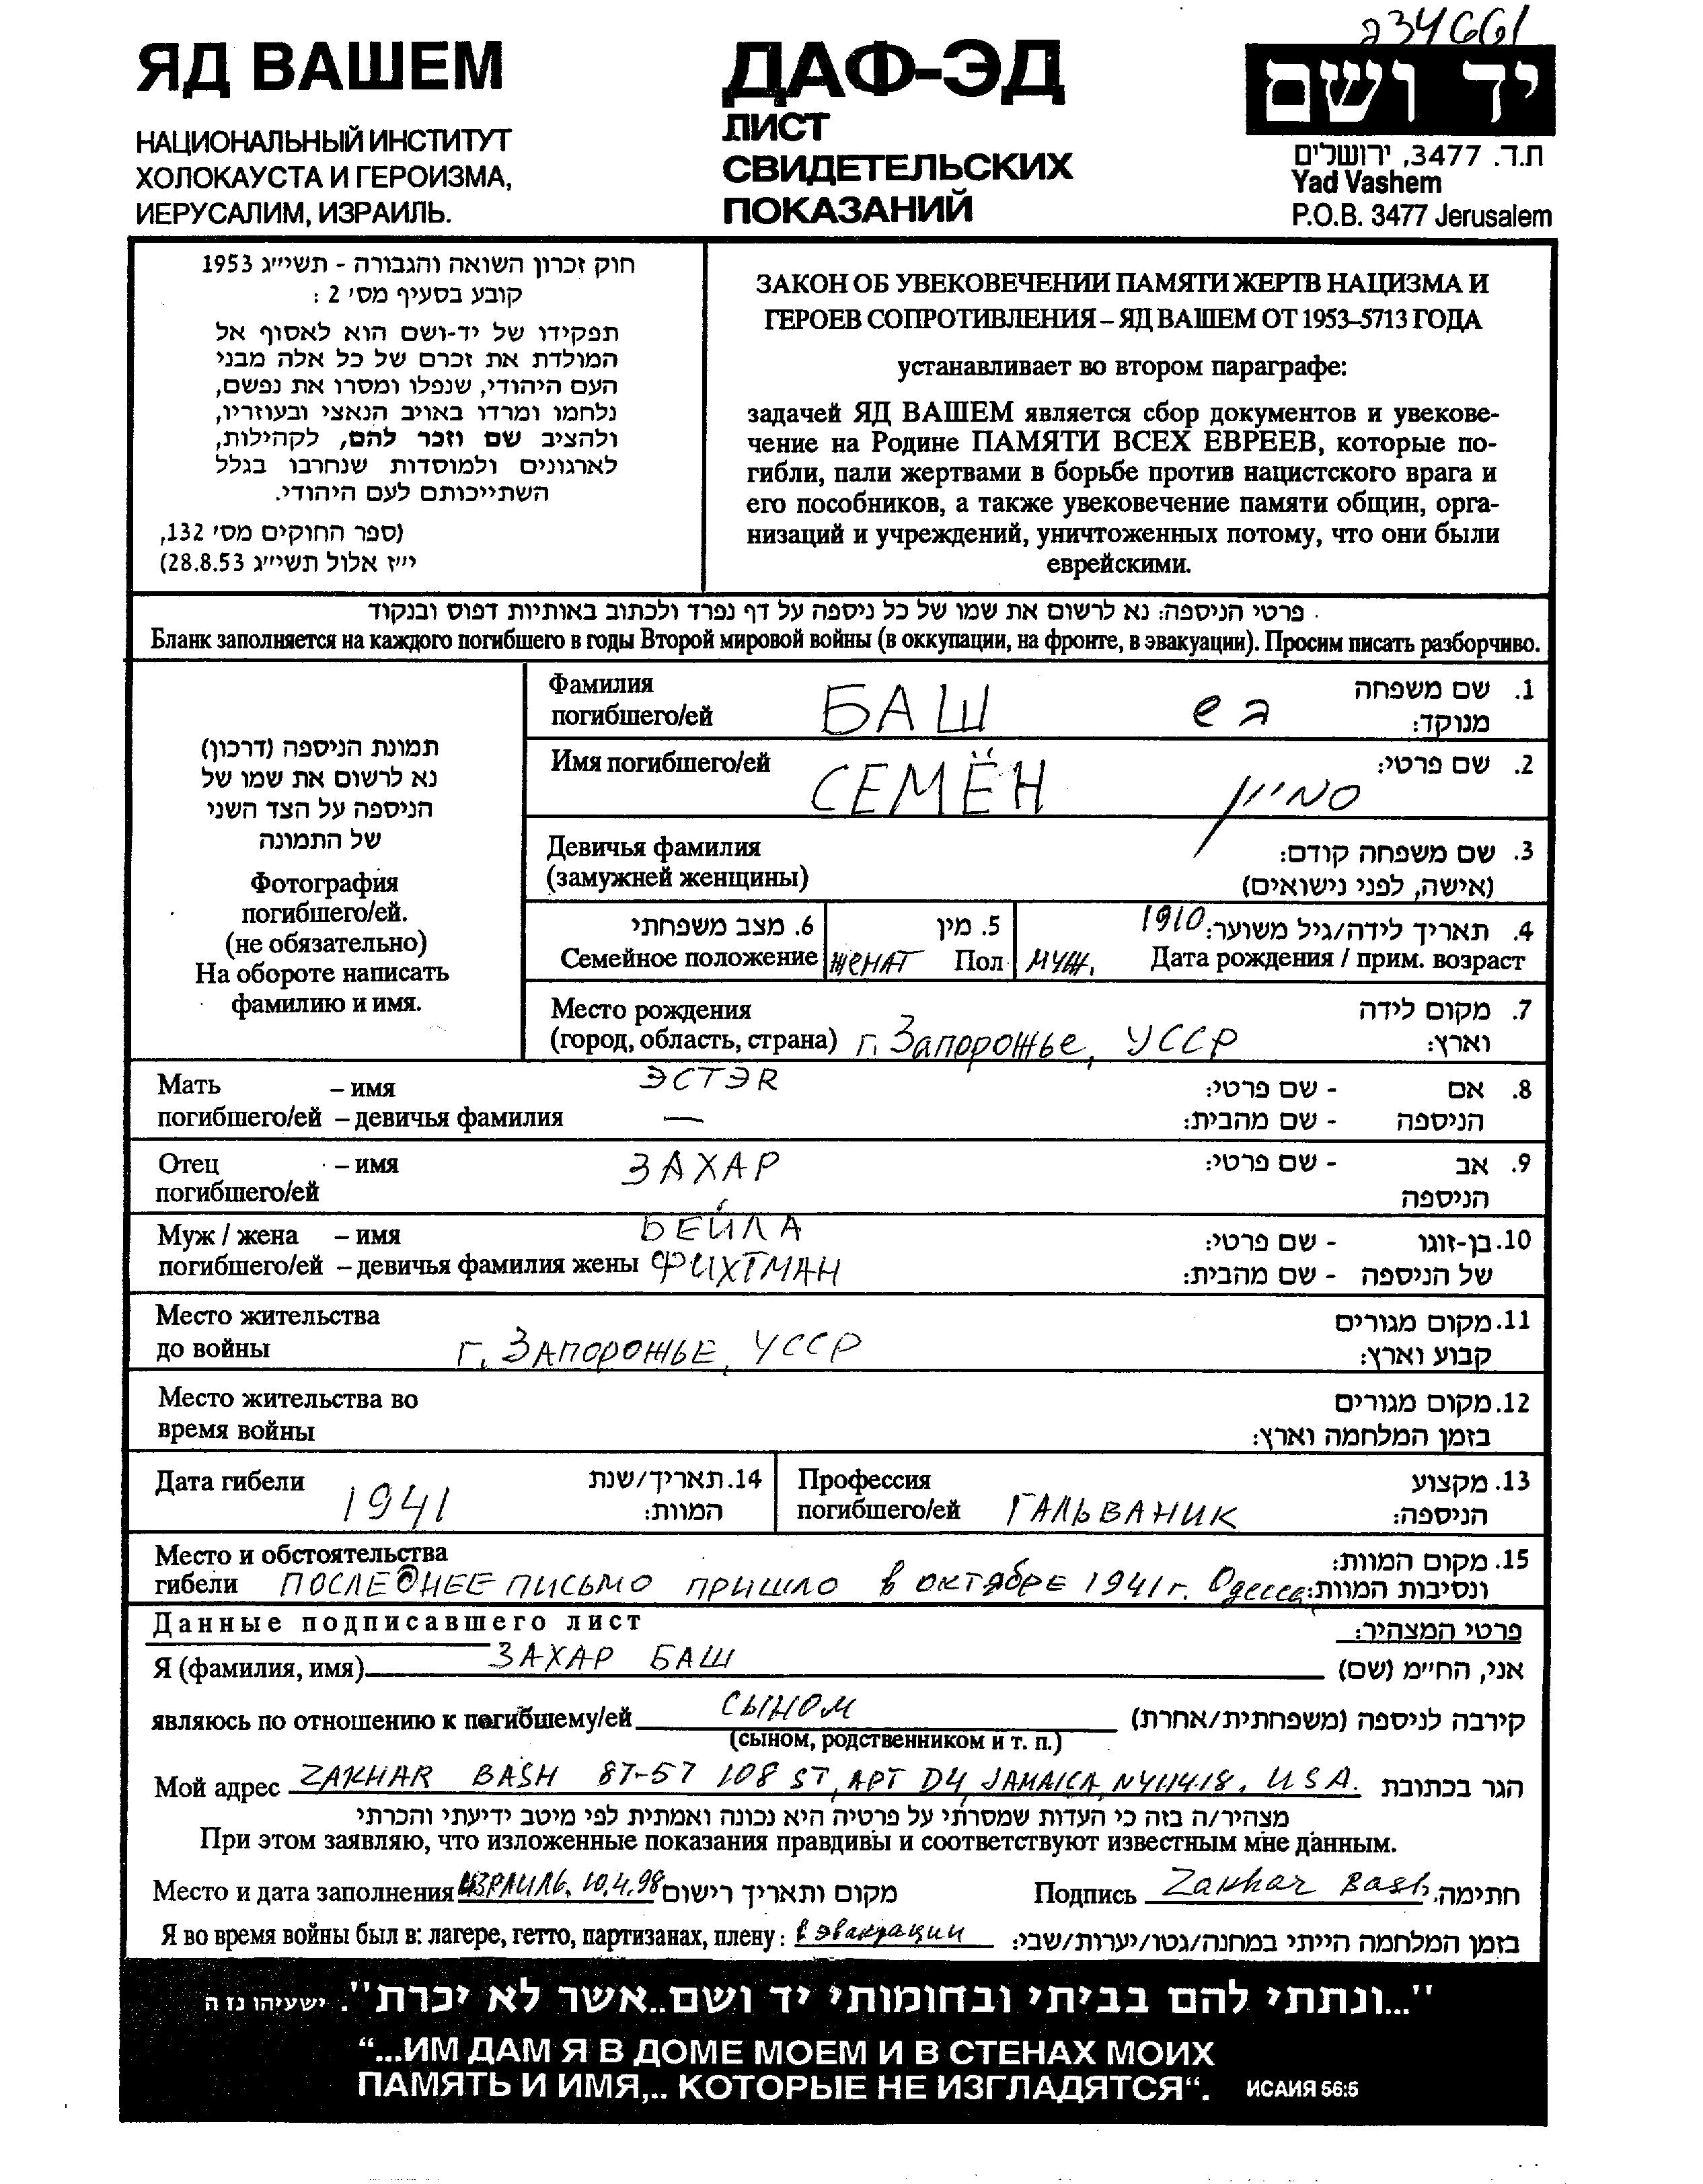 234661
ЯД ВАШЕМ
НАЦИОНАЛЬНЫЙ ИНСТИТУТ
ХОЛОКАУСТА И ГЕРОИЗМА,
ИЕРУСАЛИМ, ИЗРАИЛЬ.
ДАФ-ЭД
ЛИСТ
СВИДЕТЕЛЬСКИХ
ПОКАЗАНИЙ
יד ושם
ת.ד. 3477, ירושלים
Yad Vashem
P.O.B. 3477 Jerusalem
חוק זכרון השואה והגבורה - תשי״ג 1953
קובע בסעיף מס׳ 2 :
תפקידו של יד-ושם הוא לאסוף אל
המולדת את זכרם של כל אלה מבני
העם היהודי, שנפלו ומסרו את נפשם,
נלחמו ומרדו באויב הנאצי ובעוזריו,
ולהציב שם וזכר להם, לקהילות,
לארגונים ולמוסדות שנחרבו בגלל
השתייכותם לעם היהודי.
(ספר החוקים מס׳ 132,
י״ז אלול תשי״ג 28.8.53)
ЗАКОН ОБ УВЕКОВЕЧЕНИИ ПАМЯТИ ЖЕРТВ НАЦИЗМА И
ГЕРОЕВ СОПРОТИВЛЕНИЯ – ЯД ВАШЕМ ОТ 1953–5713 ГОДА
устанавливает во втором параграфе:
задачей ЯД ВАШЕМ является сбор документов и увекове-
чение на Родине ПАМЯТИ ВСЕХ ЕВРЕЕВ, которые по-
гибли, пали жертвами в борьбе против нацистского врага и
его пособников, а также увековечение памяти общин, орга-
низаций и учреждений, уничтоженных потому, что они были
еврейскими.
פרטי הניספה: נא לרשום את שמו של כל ניספה על דף נפרד ולכתוב באותיות דפוס ובנקוד
Бланк заполняется на каждого погибшего в годы Второй мировой войны (в оккупации, на фронте, в эвакуации). Просим писать разборчиво.
תמונת הניספה (דרכון)
נא לרשום את שמו של
הניספה על הצד השני
של התמונה
Фотография
погибшего/ей.
(не обязательно)
На обороте написать
фамилию и имя.
Фамилия 1. שם משפחה
погибшего/ей БАШ בש מנוקד:
Имя погибшего/ей СЕМЁН סמיון 2. שם פרטי:
Девичья фамилия 3. שם משפחה קודם:
(замужней женщины) (אישה, לפני נישואים)
6. מצב משפחתי 5. מין 1910 4. תאריך לידה/גיל משוער:
Семейное положение ЖЕНАТ Пол МУЖ. Дата рождения / прим. возраст
Место рождения 7. מקום לידה
(город, область, страна) г. Запорожье, УССР וארץ:
Мать – имя ЭСТЭR 8. אם - שם פרטי:
погибшего/ей – девичья фамилия — הניספה - שם מהבית:
Отец – имя ЗАХАР 9. אב - שם פרטי:
погибшего/ей הניספה
Муж / жена – имя БЕЙЛА 10. בן-זוגו - שם פרטי:
погибшего/ей – девичья фамилия жены ФИХТМАН של הניספה - שם מהבית:
Место жительства 11. מקום מגורים
до войны г. ЗАПОРОЖЬЕ, УССР קבוע וארץ:
Место жительства во 12. מקום מגורים
время войны בזמן המלחמה וארץ:
Дата гибели 1941 14. תאריך/שנת המוות:
Профессия 13. מקצוע
погибшего/ей ГАЛЬВАНИК הניספה:
Место и обстоятельства 15. מקום המוות:
гибели ПОСЛЕДНЕЕ ПИСЬМО ПРИШЛО в ОКТЯБРЕ 1941 г. Одесса ונסיבות המוות:
Данные подписавшего лист פרטי המצהיר:
Я (фамилия, имя) ЗАХАР БАШ אני, החי״מ (שם)
являюсь по отношению к погибшему/ей СЫНОМ קירבה לניספה (משפחתית/אחרת)
(сыном, родственником и т. п.)
Мой адрес ZAKHAR BASH 87-57 108 ST, APT D4, JAMAICA, NY11418, USA. הגר בכתובת
מצהיר/ה בזה כי העדות שמסרתי על פרטיה היא נכונה ואמתית לפי מיטב ידיעתי והכרתי
При этом заявляю, что изложенные показания правдивы и соответствуют известным мне данным.
Место и дата заполнения ИЗРАИЛЬ, 10.4.98 מקום ותאריך רישום Подпись Zakhar Bash חתימה.
Я во время войны был в: лагере, гетто, партизанах, плену: в эвакуации בזמן המלחמה הייתי במחנה/גטו/יערות/שבי:
"...ונתתי להם בביתי ובחומותי יד ושם..אשר לא יכרת". ישעיהו נז ה
“...ИМ ДАМ Я В ДОМЕ МОЕМ И В СТЕНАХ МОИХ
ПАМЯТЬ И ИМЯ,.. КОТОРЫЕ НЕ ИЗГЛАДЯТСЯ“. ИСАИЯ 56:5